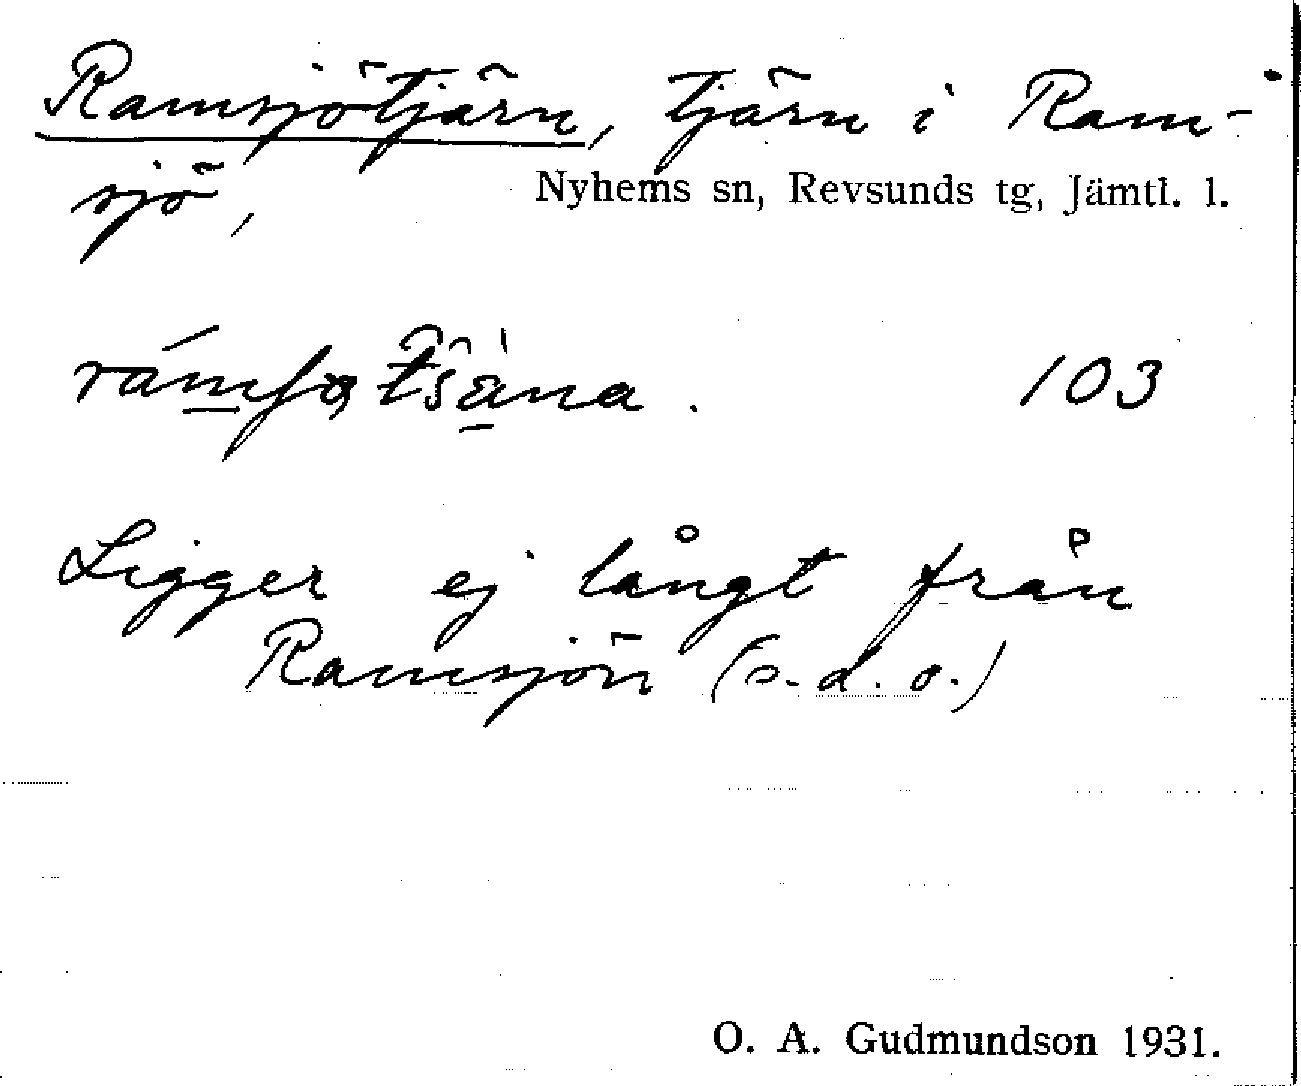 Ramsjötjärn, tjärn i Ram-
sjö,
Nyhems sn, Revsunds tg, Jämtl. l.
103
Ligger ej långt från
Ramsjön (s.d.o.)
O. A. Gudmundson 1931.